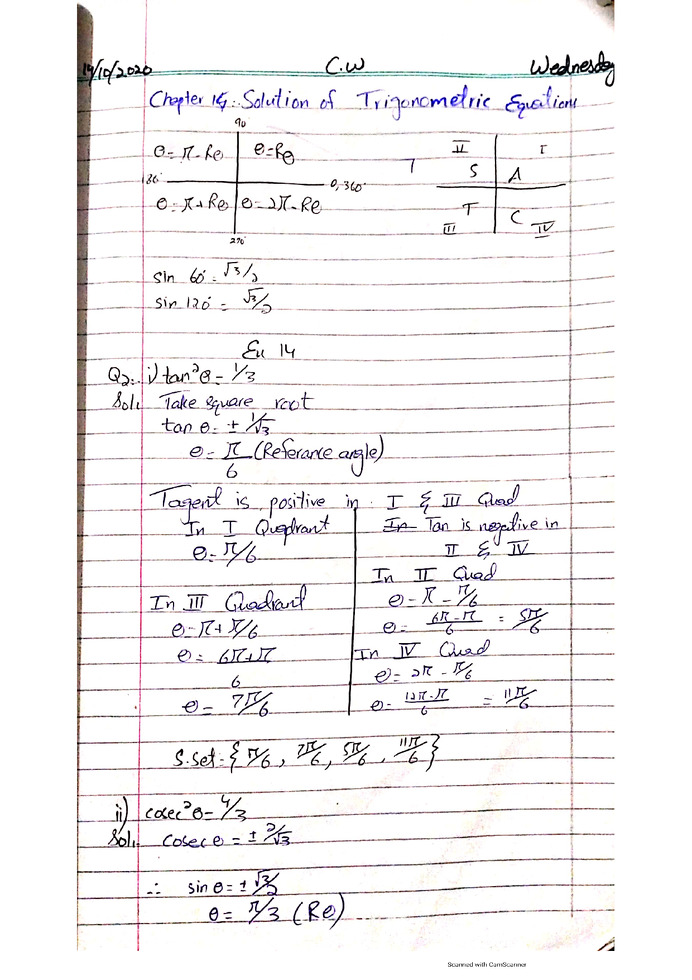 14/10/2020 C.W Wednesday
Chapter 14: Solution of Trigonometric Equations
90
θ = π - Rθ θ = Rθ
180° 0, 360°
θ = π + Rθ θ = 2π - Rθ
270°
II I
S A
T C
III IV
sin 60° = √3/2
sin 120° = √3/2
Ex 14
Q2:- i) tan²θ = 1/3
Sol: Take square root
tan θ = ± 1/√3
θ = π/6 (Referance angle)
Tagent is positive in I & III Quad
In I Quadrant
θ = π/6
In III Quadrant
θ = π + π/6
θ = 6π+π/6
θ = 7π/6
In Tan is negative in
II & IV
In II Quad
θ = π - π/6
θ = 6π-π/6 = 5π/6
In IV Quad
θ = 2π - π/6
θ = 12π-π/6 = 11π/6
S.Set = {π/6, 7π/6, 5π/6, 11π/6}
ii) cosec²θ = 4/3
Sol: cosec θ = ± 2/√3
∴ sin θ = ± √3/2
θ = π/3 (Rθ)
Scanned with CamScanner